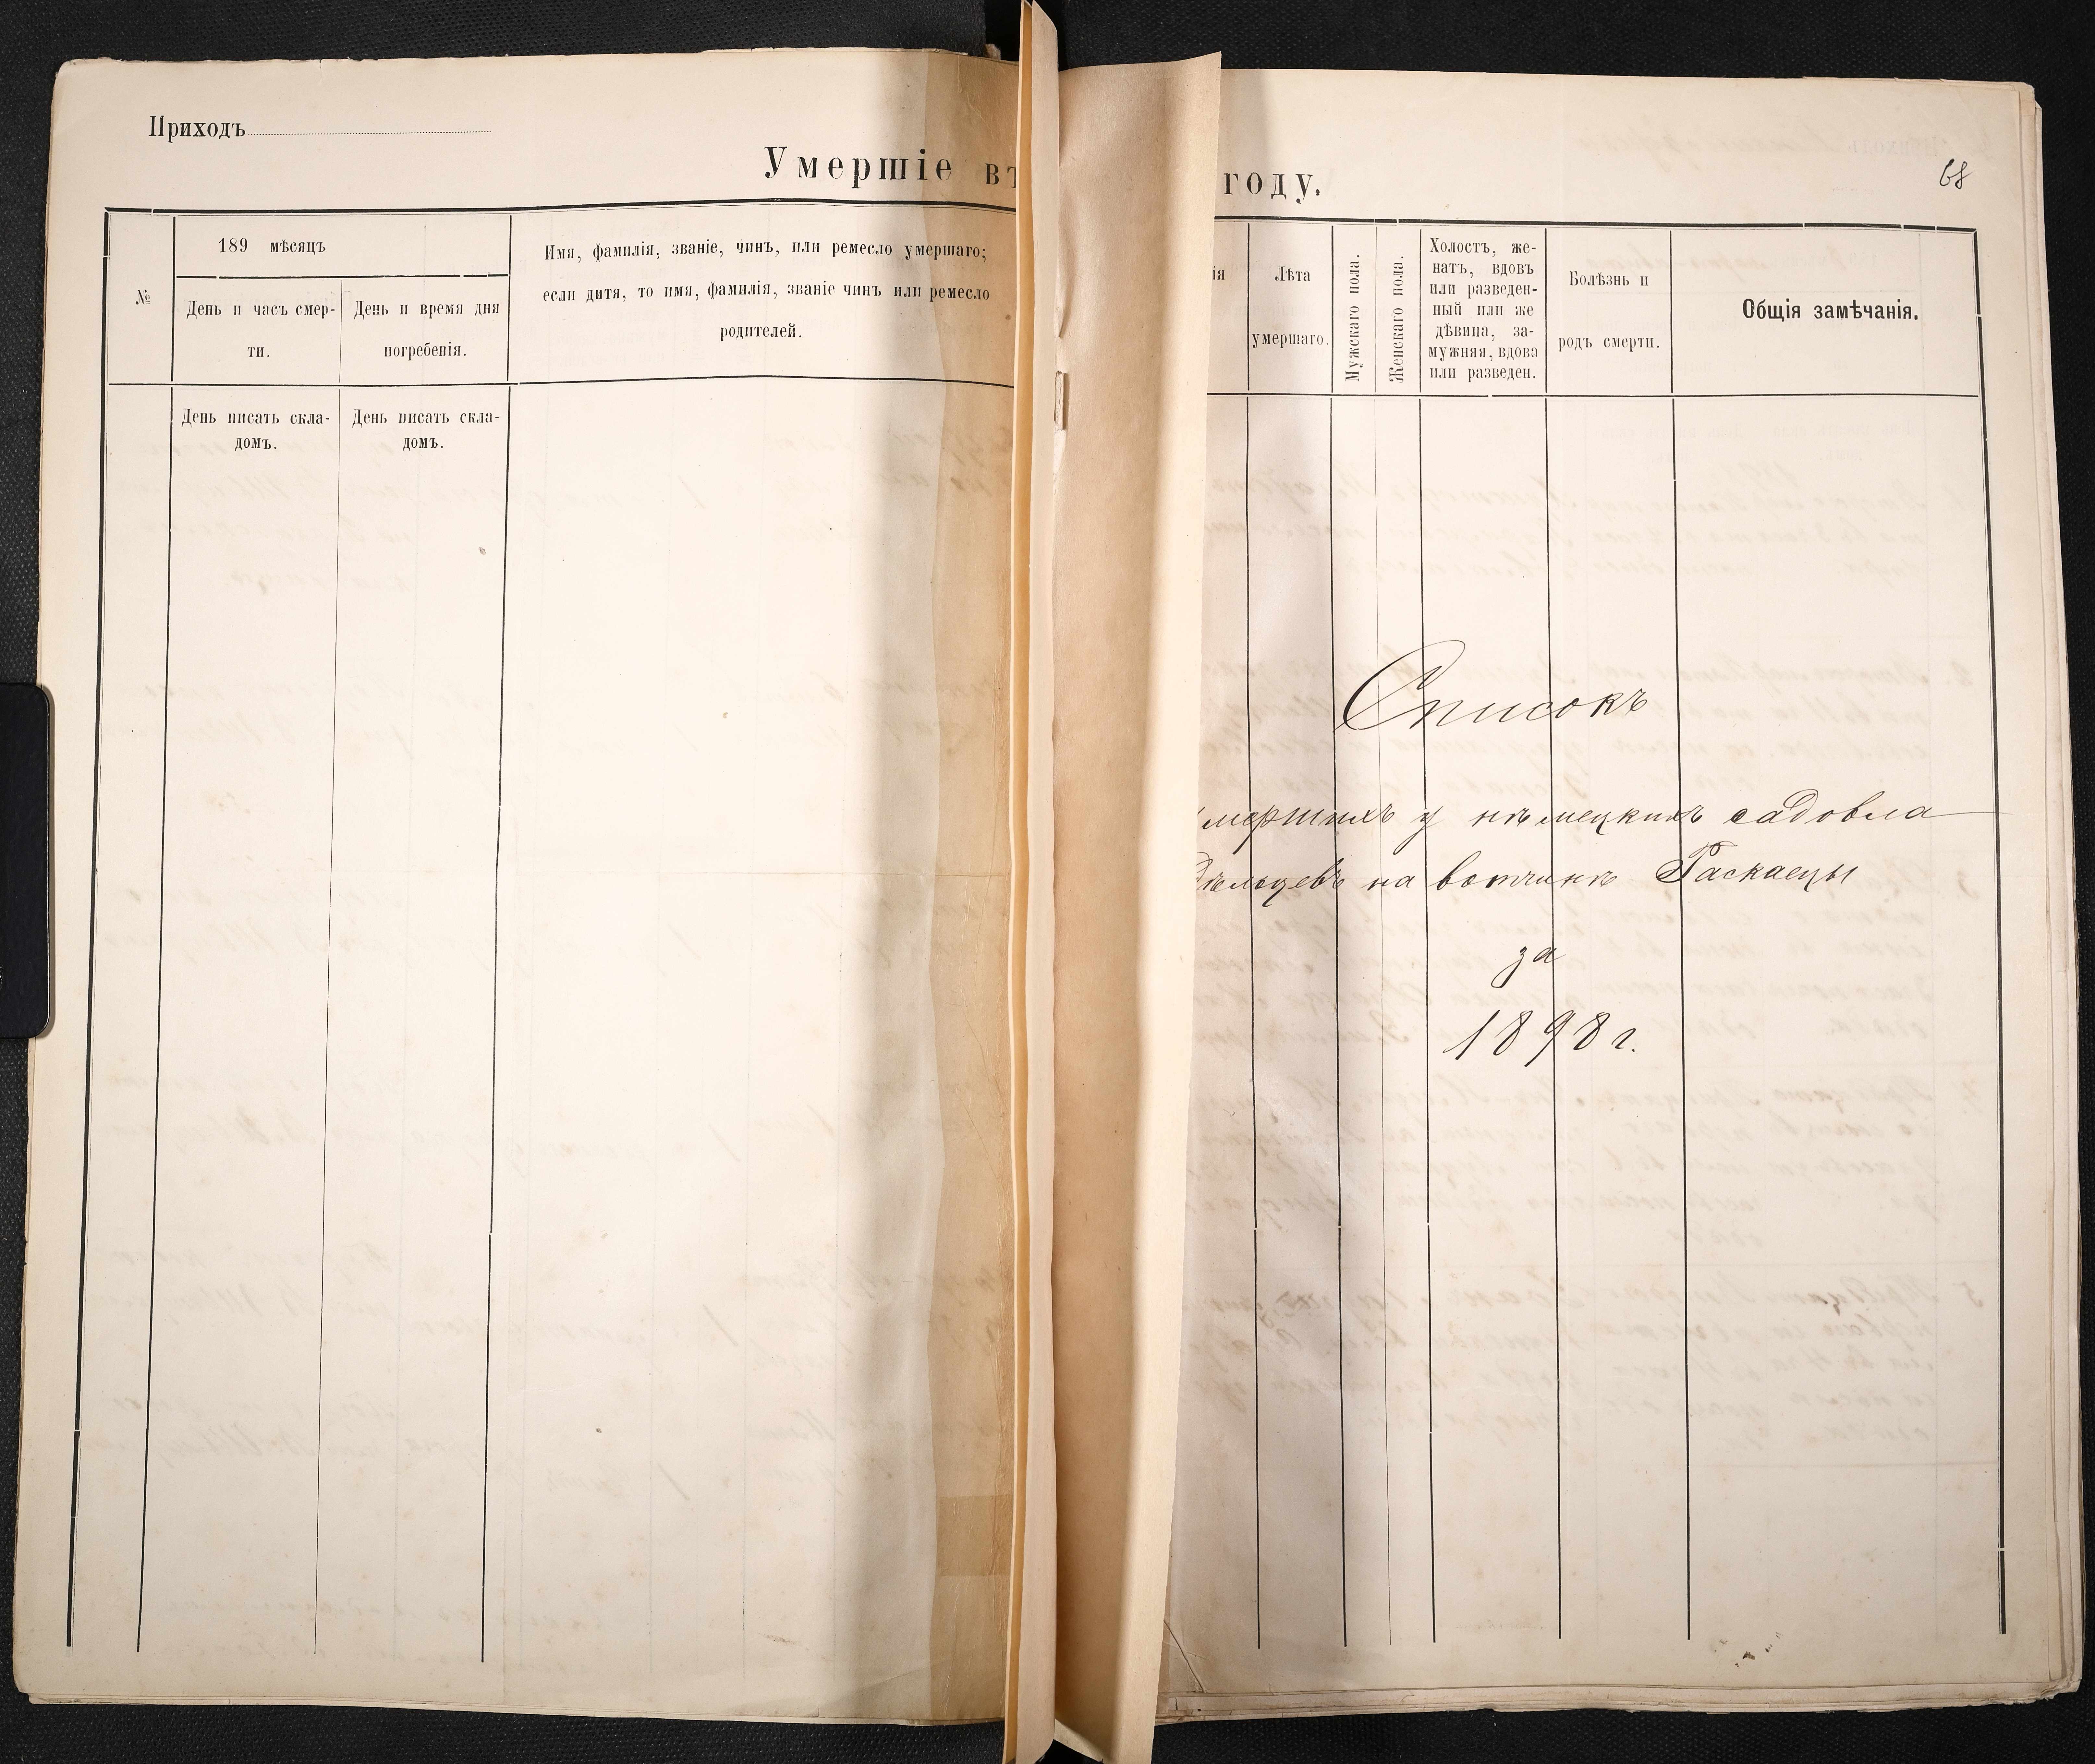 Приходъ
Умершіе въ
году.
68
№
189 мѣсяцъ
День и часъ смер-
ти.
День и время дня
погребенія.
Имя, фамилія, званіе, чинъ, или ремесло умершаго;
если дитя, то имя, фамилія, званіе чинъ или ремесло
родителей.
ія
Лѣта
умершаго.
Мужскаго пола.
Женскаго пола.
Холостъ, же-
натъ, вдовъ
или разведен-
ный или же
дѣвица, за-
мужняя, вдова
или разведен.
Болѣзнь и
родъ смерти.
Общія замѣчанія.
День писать скла-
домъ.
День писать скла-
домъ.
Списокъ
умершихъ у нѣмецкихъ садовла
дѣльцевъ на вотчинѣ Раскаецы
за
1898 г.